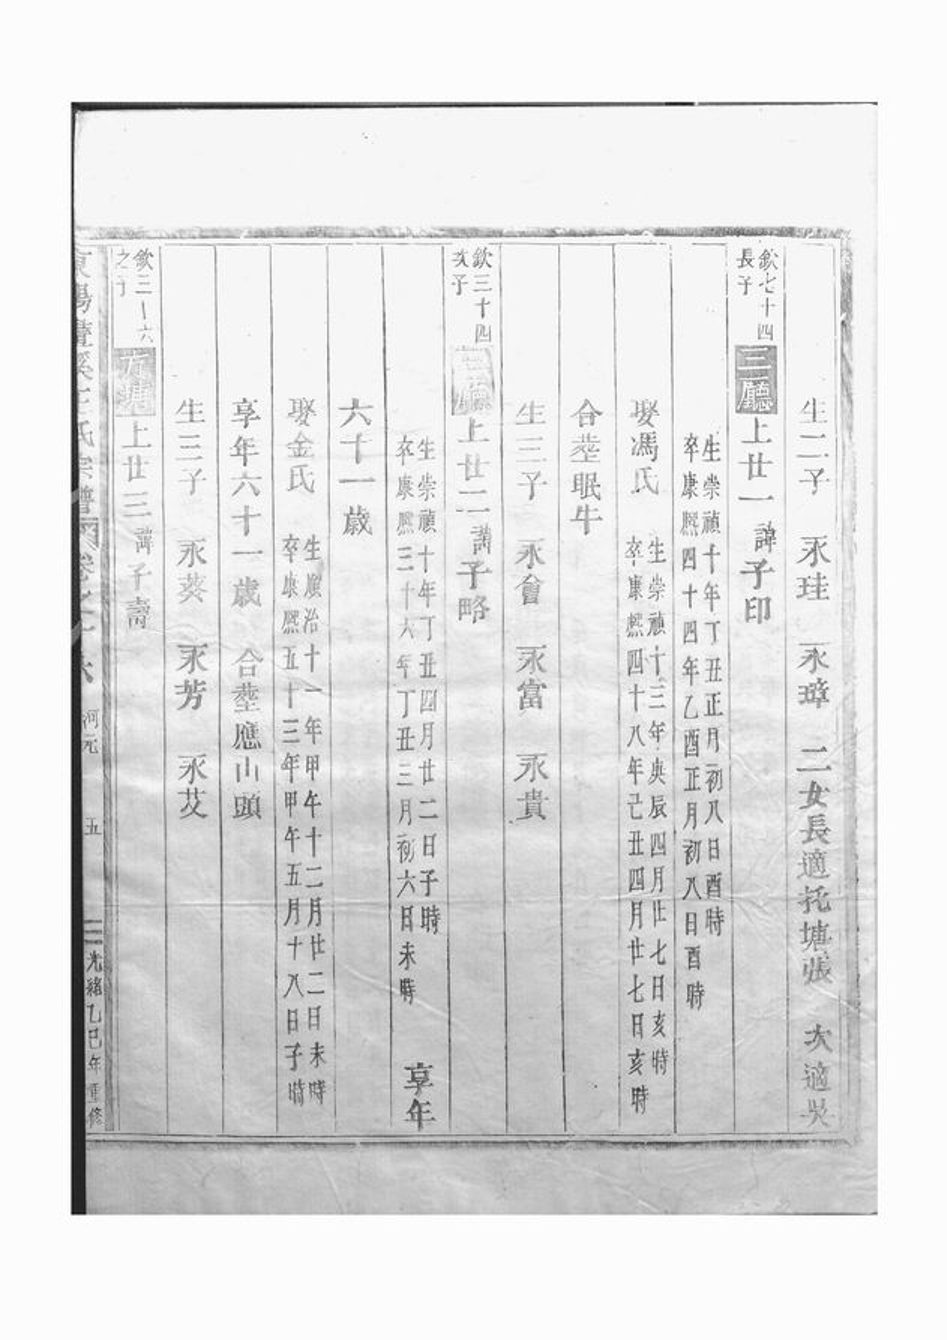 生二子 永珪 永璋 二女長適托塘張 次適吳
欽七十四
長子
三廳上廿一諱子印
生崇禎十年丁丑正月初八日酉時
卒康熙四十四年乙酉正月初八日酉時
娶馮氏
生崇禎十三年庚辰四月廿七日亥時
卒康熙四十八年己丑四月廿七日亥時
合塟眠牛
生三子 永會 永富 永貴
欽三十四
次子
上廿二諱子略
生崇禎十年丁丑四月廿二日子時
卒康熙三十六年丁丑三月初六日未時
享年
六十一歲
娶金氏
生順治十一年甲午十二月廿二日未時
卒康熙五十三年甲午五月十八日子時
享年六十一歲 合塟應山頭
生三子 永葵 永芳 永芠
欽三
六
之子
塘上廿三諱子壽
氏宗譜
河元
五
光緒乙巳年重修